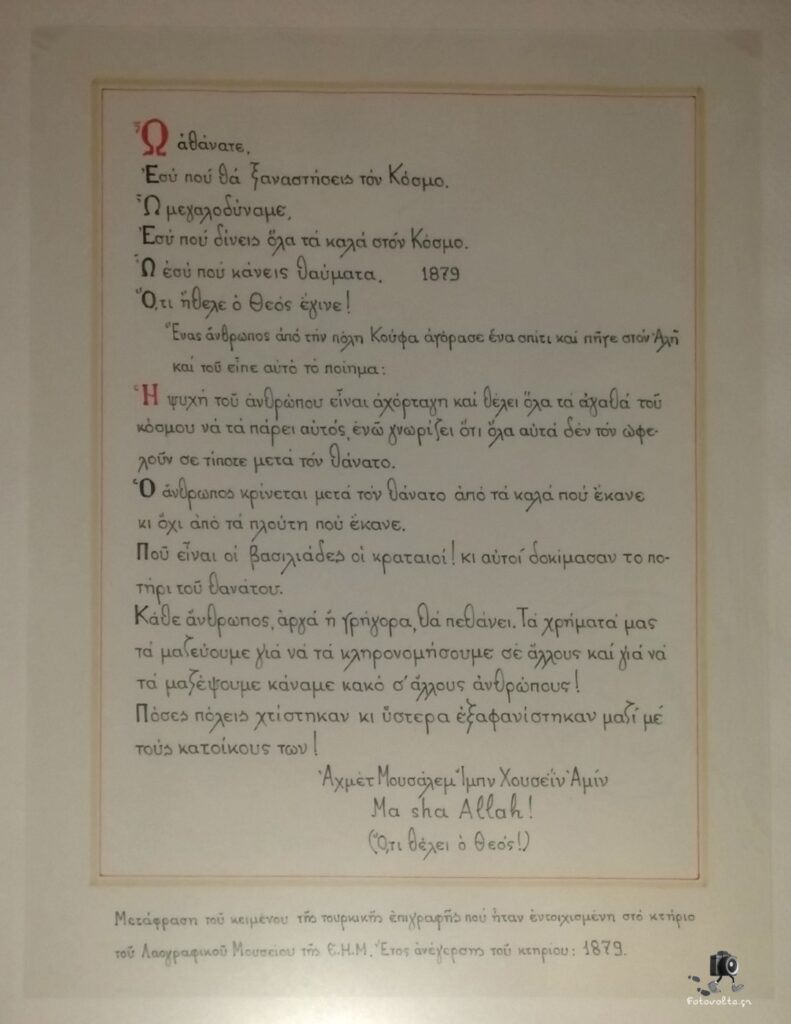 Ὦ ἀθάνατε,
Ἐσύ πού θά ξαναστήσεις τόν Κόσμο.
Ὦ μεγαλοδύναμε,
Ἐσύ πού δίνεις ὅλα τά καλά στόν Κόσμο.
Ὦ ἐσύ πού κάνεις θαύματα. 1879
Ὅ,τι ἤθελε ὁ Θεός ἔγινε!
Ἕνας ἄνθρωπος ἀπό τήν πόλη Κούφα ἀγόρασε ἕνα σπίτι καί πῆγε στόν Ἀλῆ
καί τοῦ εἶπε αὐτό τό ποίημα:
Ἡ ψυχή τοῦ ἀνθρώπου εἶναι ἀχόρταγη καί θέλει ὅλα τά ἀγαθά τοῦ
κόσμου νά τά πάρει αὐτός, ἐνῶ γνωρίζει ὅτι ὅλα αὐτά δέν τόν ὠφε-
λοῦν σε τίποτε μετά τόν θάνατο.
Ὁ ἄνθρωπος κρίνεται μετά τόν θάνατο ἀπό τά καλά πού ἔκανε
κι ὄχι ἀπό τά πλούτη πού ἔκανε.
Ποῦ εἶναι οἱ βασιλιάδες οἱ κραταιοί! κι αὐτοί δοκίμασαν το πο-
τήρι τοῦ θανάτου.
Κάθε ἄνθρωπος, ἀργά ἤ γρήγορα, θά πεθάνει. Τά χρήματά μας
τά μαζεύουμε γιά νά τά κληρονομήσουμε σέ ἄλλους καί γιά νά
τά μαζέψουμε κάναμε κακό σ' ἄλλους ἀνθρώπους!
Πόσες πόλεις χτίστηκαν κι ὕστερα ἐξαφανίστηκαν μαζί μέ
τούς κατοίκους των!
Ἀχμέτ Μουσάλεμ Ἴμπν Χουσεΐν Ἀμίν
Ma sha Allah!
(Ὅ,τι θέλει ὁ Θεός!)
Μετάφραση τοῦ κειμένου τῆς τουρκικῆς ἐπιγραφῆς πού ἦταν ἐντοιχισμένη στό κτήριο
τοῦ Λαογραφικοῦ Μουσείου τῆς Ε.Η.Μ. Ἔτος ἀνέγερσης τοῦ κτηρίου: 1879.
fotovolta.gr